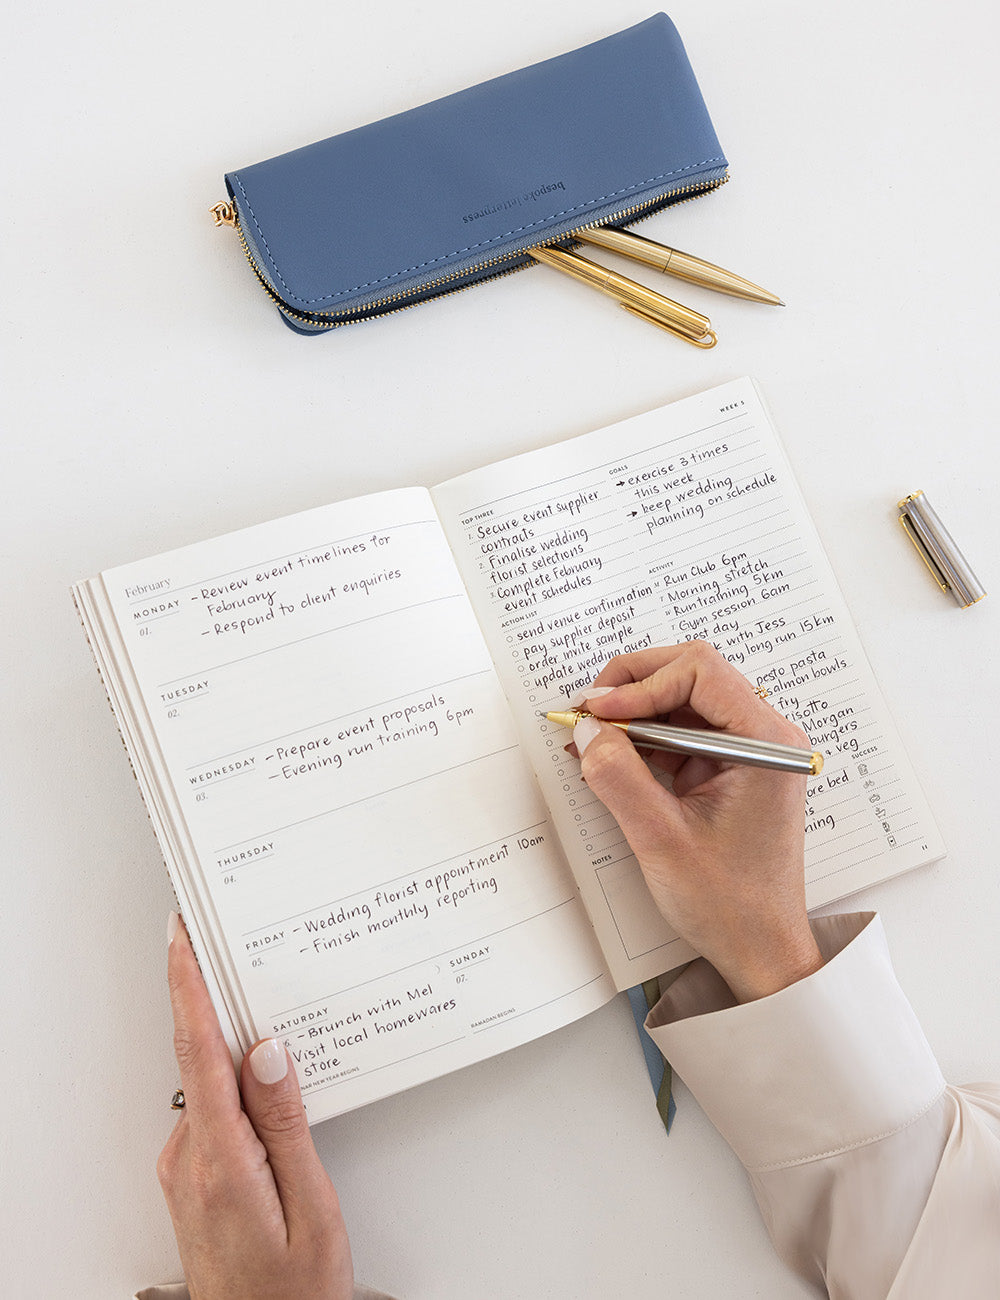 bespoke letterpress
February
MONDAY
01.
- Review event timelines for
February
- Respond to client enquiries
TUESDAY
02.
WEDNESDAY
03.
- Prepare event proposals
- Evening run training 6pm
THURSDAY
04.
FRIDAY
05.
- Wedding florist appointment 10am
- Finish monthly reporting
SATURDAY
6.
- Brunch with Mel
Visit local homewares
store
NAR NEW YEAR BEGINS
SUNDAY
07.
RAMADAN BEGINS
WEEK 5
TOP THREE
1. Secure event supplier
contracts
2. Finalise wedding
florist selections
3. Complete February
event schedules
GOALS
→ exercise 3 times
this week
→ keep wedding
planning on schedule
ACTION LIST
send venue confirmation
pay supplier deposit
order invite sample
update wedding guest
spreads
ACTIVITY
M Run Club 6pm
T Morning stretch
W Run training 5km
T Gym session 6am
F Rest day
with Jess
day long run 15km
pesto pasta
salmon bowls
fry
risotto
Morgan
burgers
+ veg
SUCCESS
ore bed
ning
NOTES
11